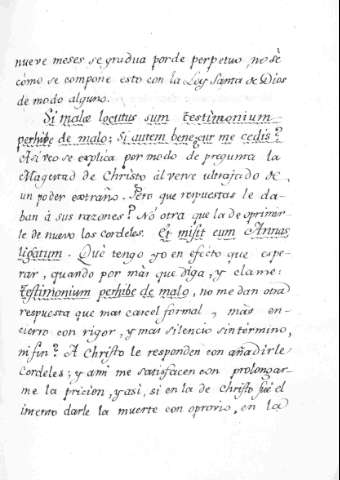 nueve meses se gradua por de perpetuo, no sè
còmo se compone esto con la Ley Santa de Dios
de modo alguno.
Si malæ locutus sum testimonium
perhibe de malo; Si autem bene cur me cedis?
Asi veo se explica por modo de pregunta la
Magestad de Christo àl verse ultrajado de
un poder extraño. Pero que respuestas le da-
ban à sus razones? No otra que la de oprimir-
le de nuevo los cordeles. Et misit eum Annas
ligatum. Què tengo yo en efecto que espe-
rar, quando por màs que diga, y clame:
testimonium perhibe de malo, no me dan otra
respuesta que mas carcel formal, màs en-
cierro con rigor, y mas silencio sin termino,
ni fin? A Christo le responden con añadirle
Cordeles; y à mi me satisfacen con prolongar-
me la pricion, y asi, si en la de Christo fuè el
intento darle la muerte con oprovio, en la